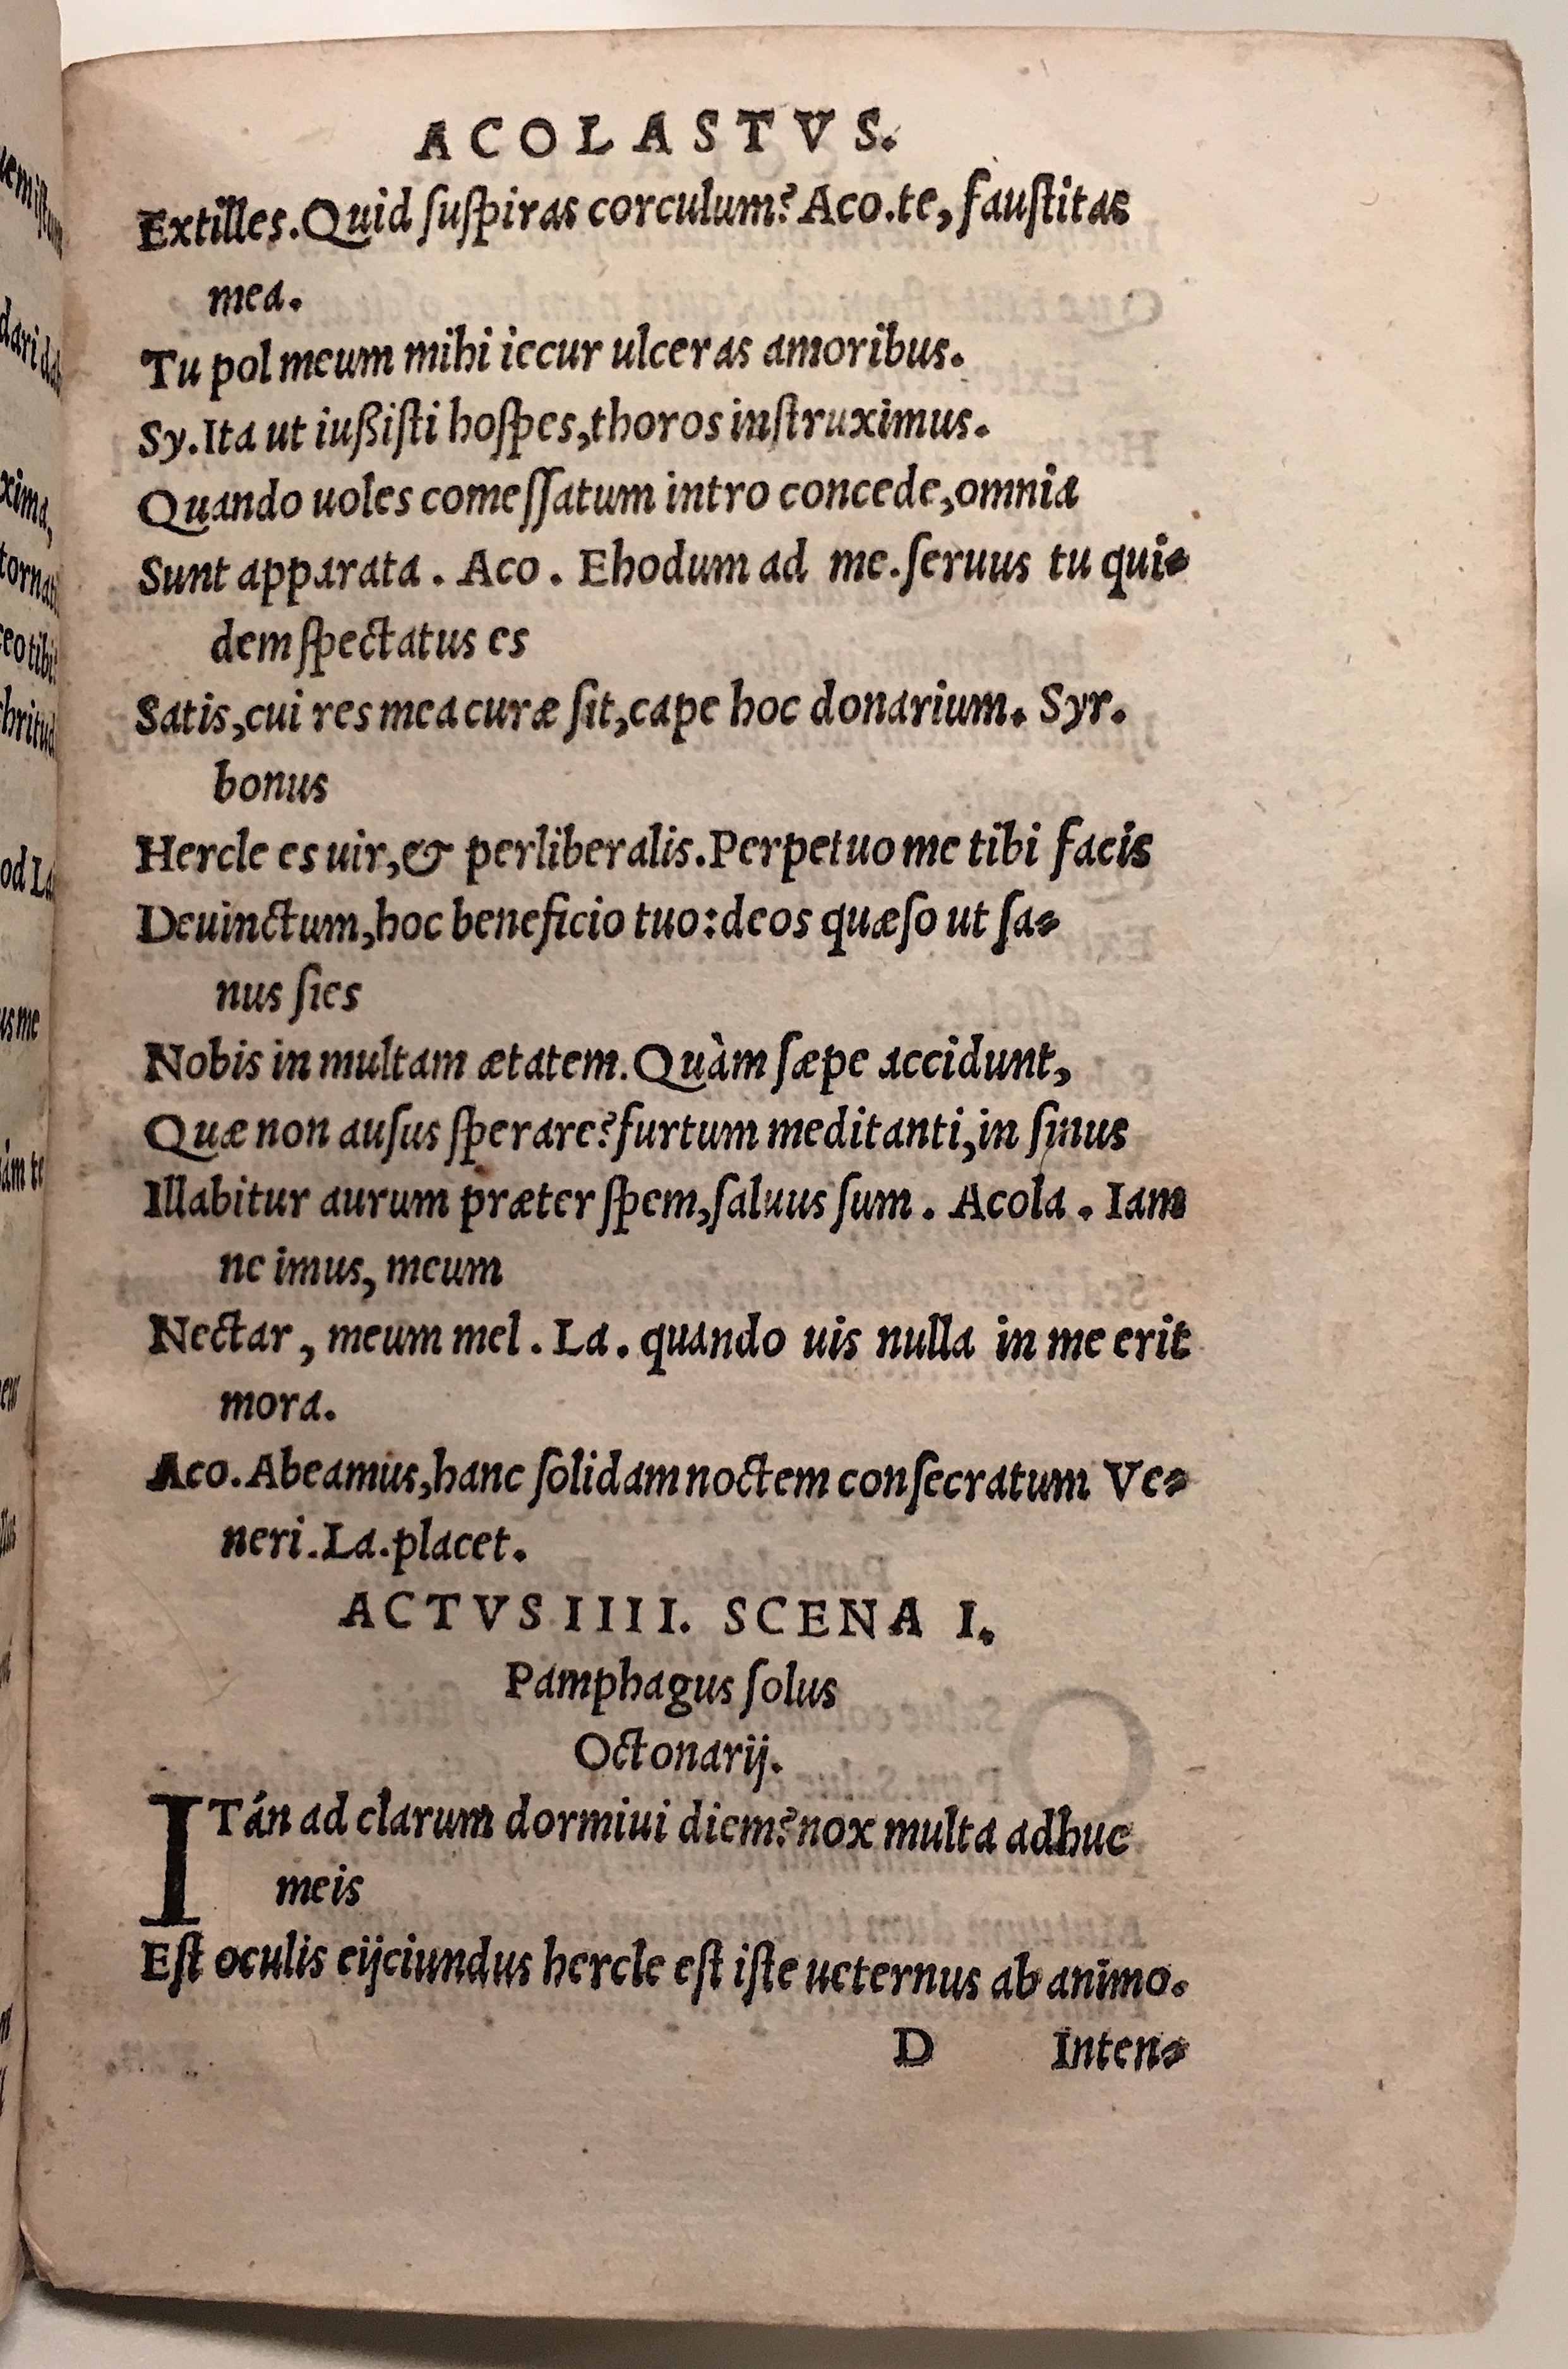 ACOLASTVS.
Extilles.Quid ſuſpiras corculum? Aco.te, fauſtitas
mea.
Tu pol meum mihi iecur ulceras amoribus.
Sy.Ita ut iußiſti hoſpes,thoros inſtruximus.
Quando uoles comeſſatum intro concede,omnia
Sunt apparata . Aco . Ehodum ad me.ſeruus tu qui-
dem ſpectatus es
Satis,cui res mea curæ ſit,cape hoc donarium. Syr.
bonus
Hercle es uir,& perliberalis.Perpetuo me tibi facis
Deuinctum,hoc beneficio tuo:deos quæſo ut ſa-
nus ſies
Nobis in multam ætatem.Quàm ſæpe accidunt,
Quæ non auſus ſperare?furtum meditanti,in ſinus
Illabitur aurum præter ſpem,ſaluus ſum . Acola . Iam
ne imus, meum
Nectar , meum mel . La . quando uis nulla in me erit
mora.
Aco.Abeamus,hanc ſolidam noctem conſecratum Ve-
neri.La.placet.
ACTVS IIII. SCENA I.
Pamphagus ſolus
Octonarij.
ITán ad clarum dormiui diem?nox multa adhuc
meis
Eſt oculis eijciundus hercle eſt iſte ueternus ab animo.
D Inten-